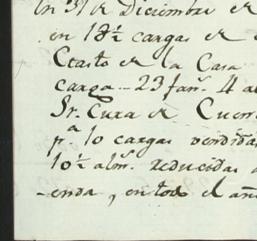 en 31 de Diciembre de
en 18½ cargas de
Ctasto de la Casa
carga... 23 fan.s 4 al
Sr. Cura de Cuen
p.a 10 cargas vendidas
10½ alm.s reducidas a
enda, en todo el añ